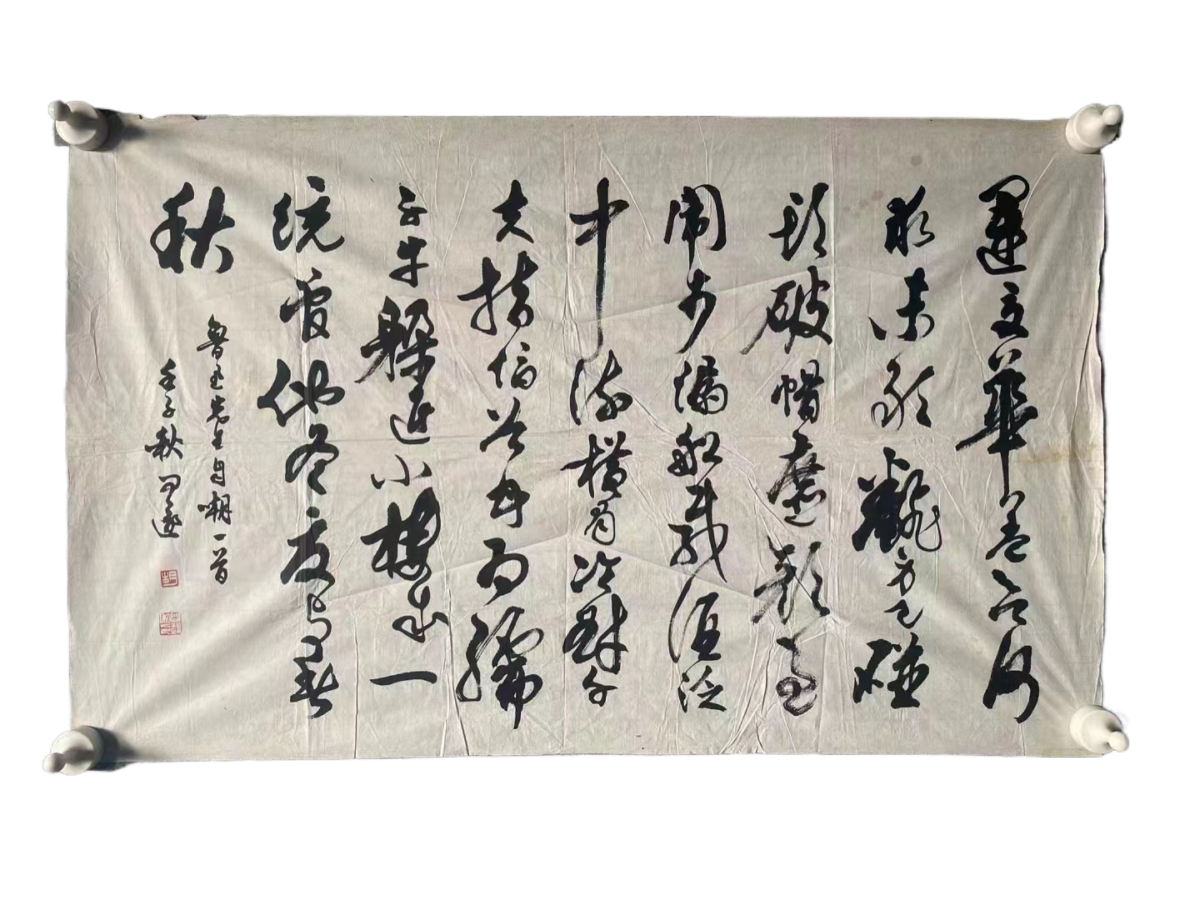 運交華蓋欲何
求未敢飜身已碰
頭破帽遮顏過
鬧市漏船載酒泛
中流横眉冷對千
夫指俯首甘為孺
子牛躲進小楼成一
统管他冬夏与春
秋
魯迅先生自嘲一首
壬子秋